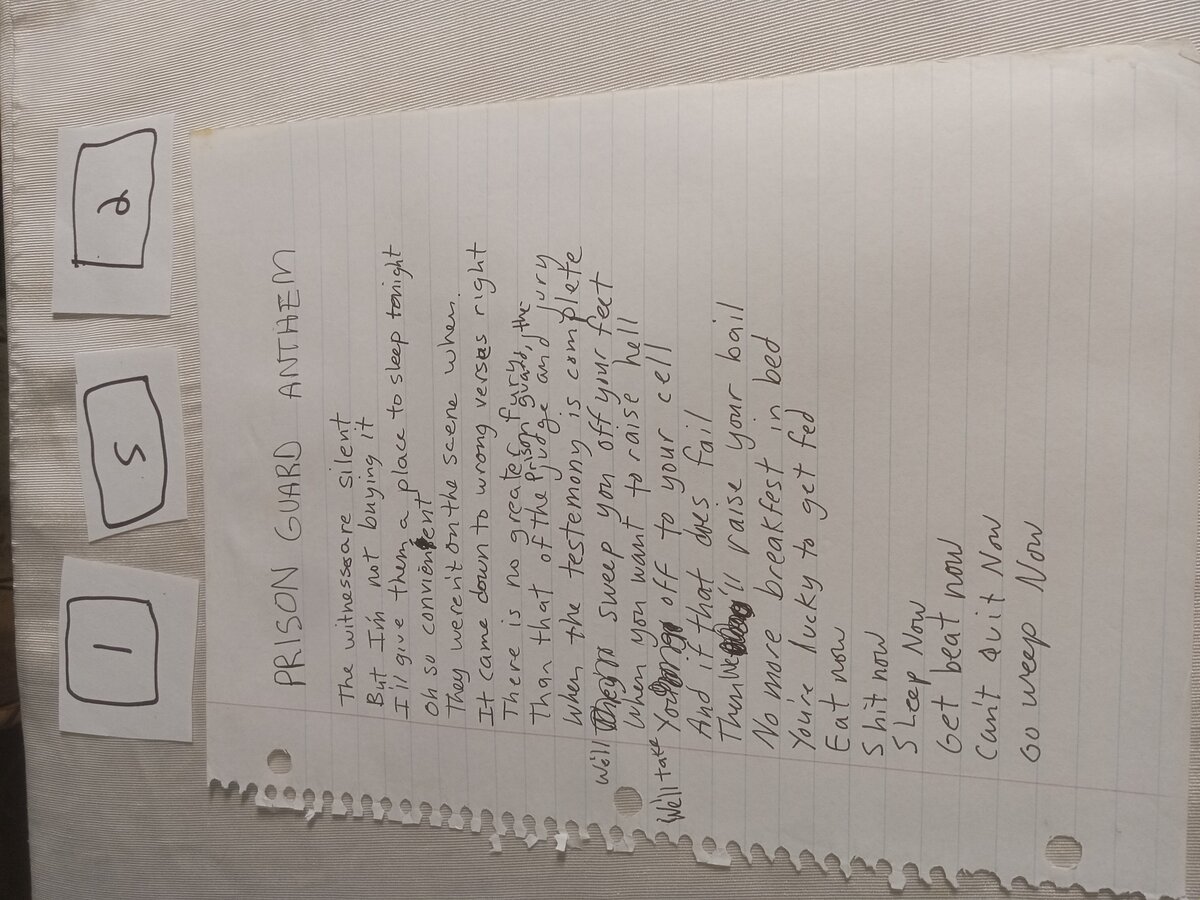 1
5
2
PRISON GUARD ANTHEM
The witnesses are silent
But I'm not buying it
I'll give them a place to sleep tonight
Oh so convienent
They weren't on the scene when
It came down to wrong versus right
There is no greater fury
Than that of the Prison guard, the judge and jury
When the testemony is complete
We'll sweep you off your feet
When you want to raise hell
We'll take you off to your cell
And if that does fail
Then we'll raise your bail
No more breakfest in bed
You're lucky to get fed
Eat now
Shit now
Sleep Now
Get beat now
Can't Quit Now
Go weep Now